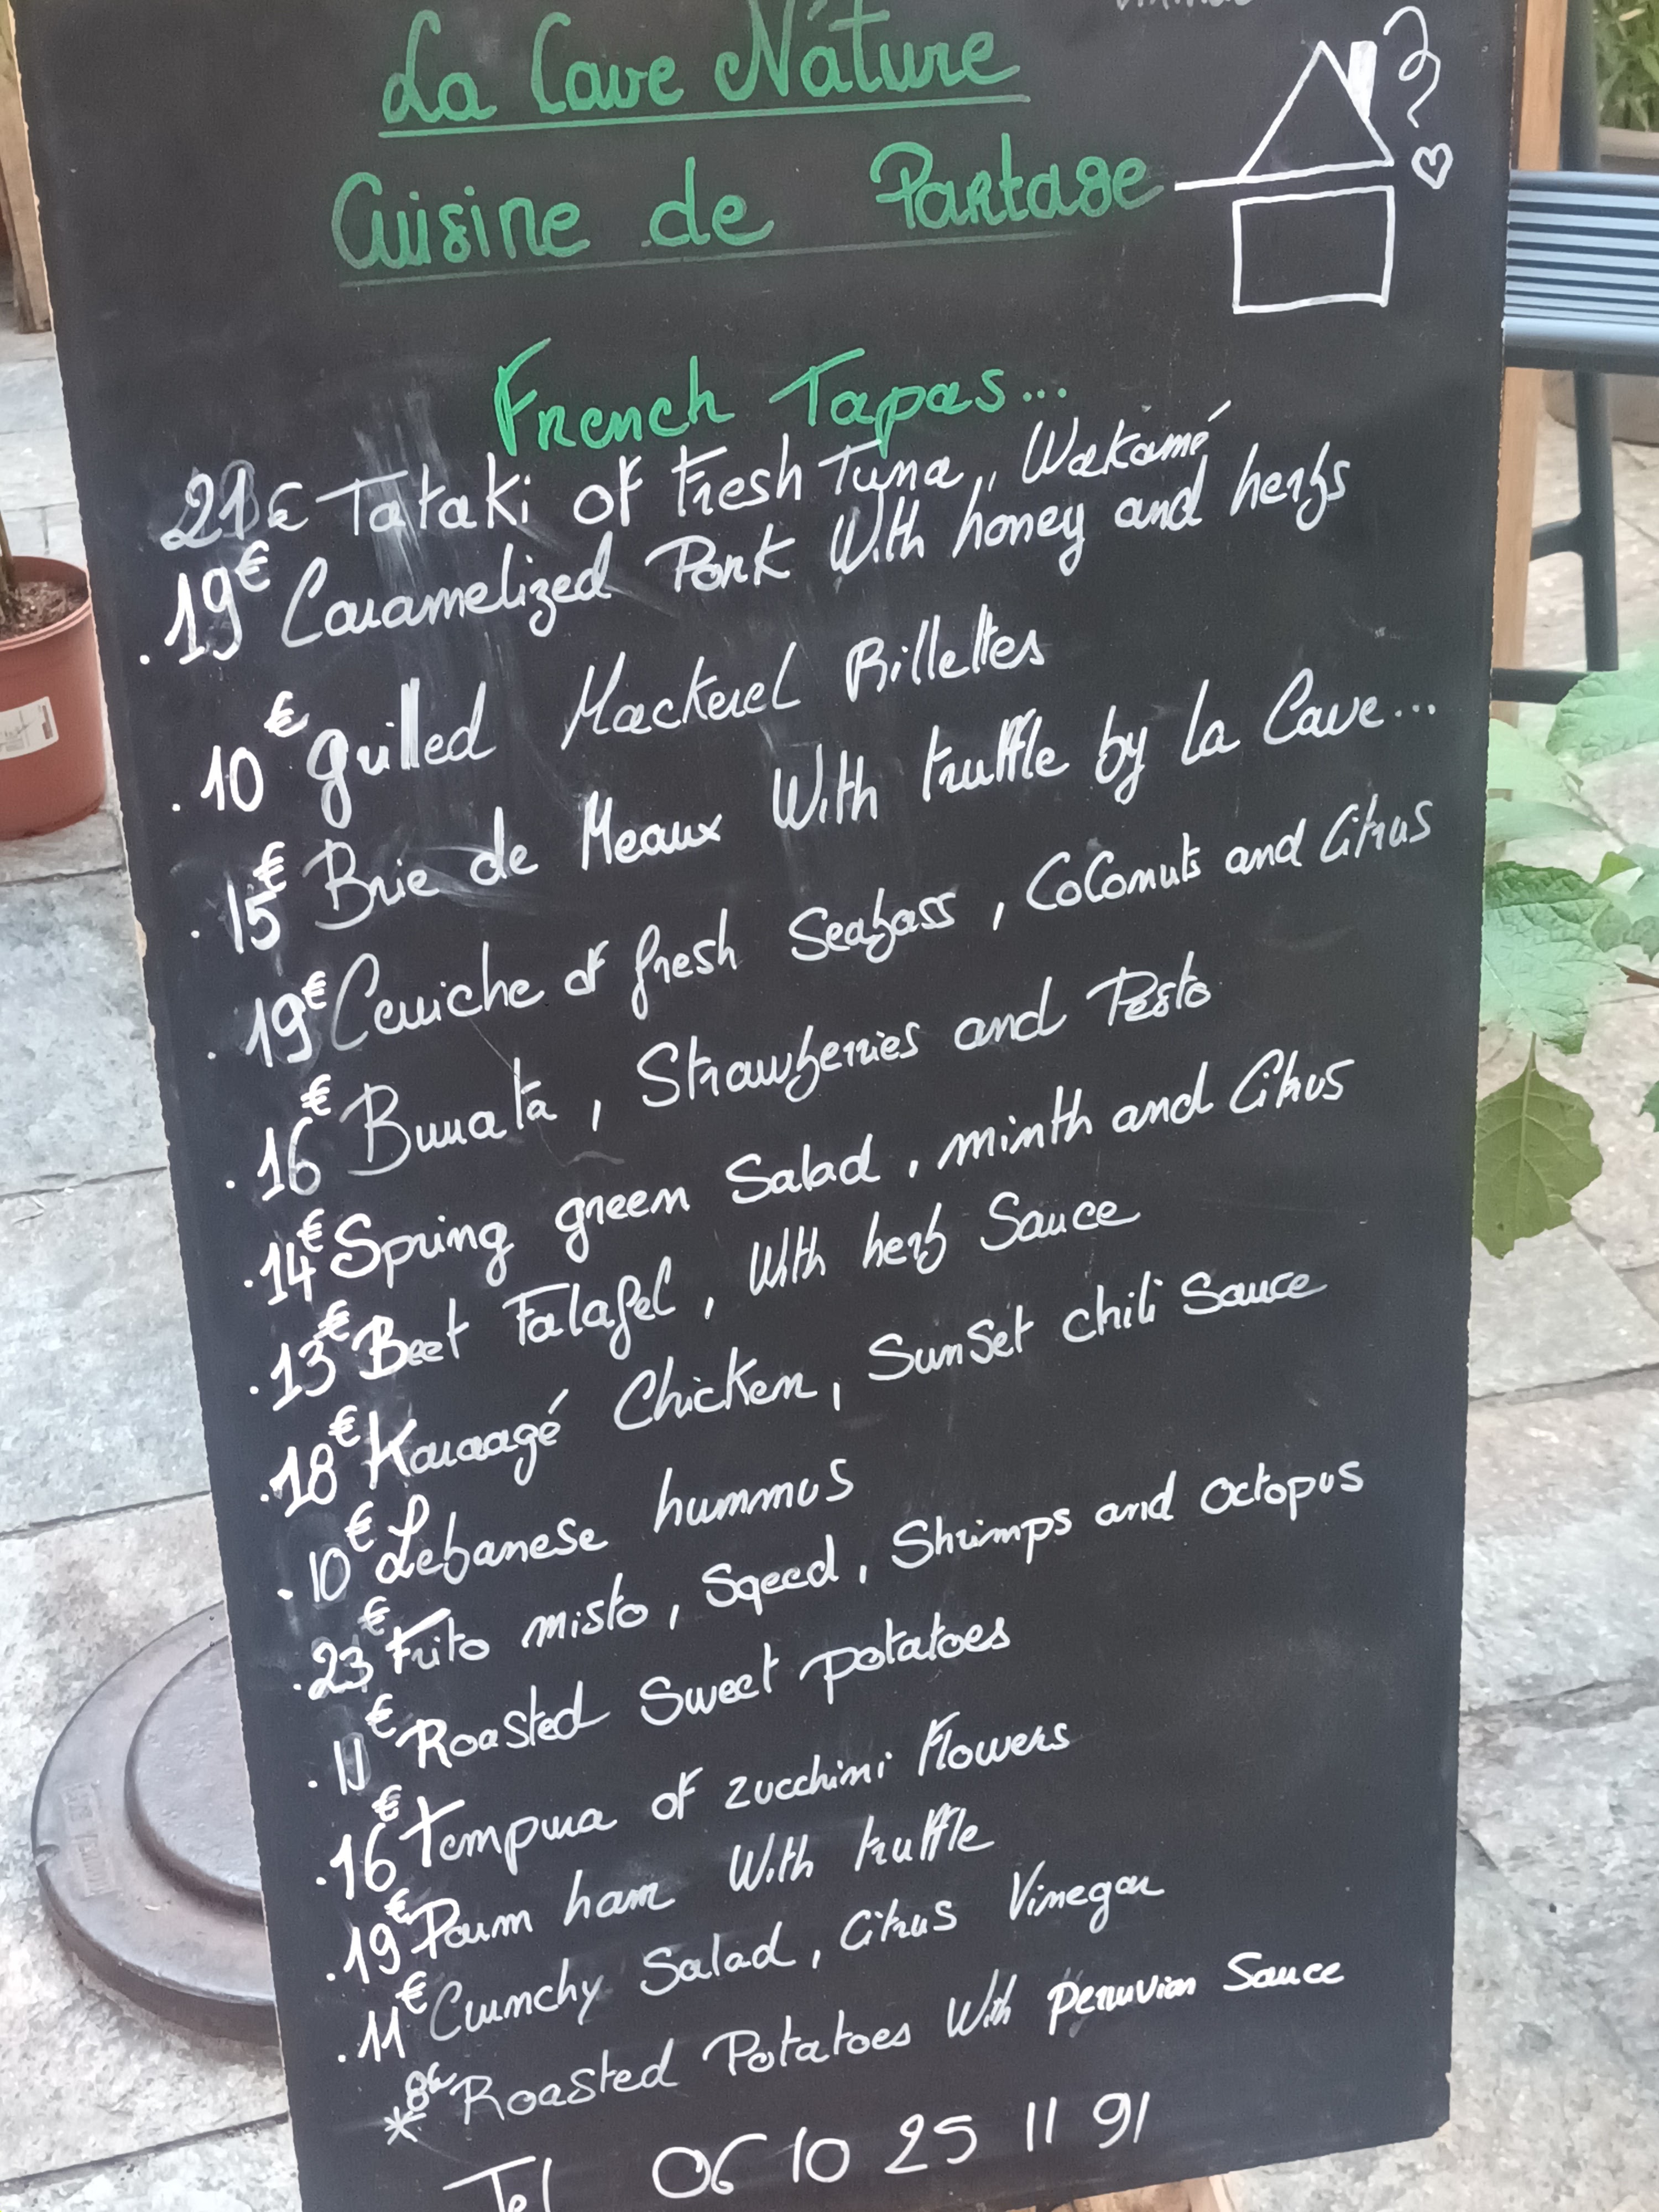 La Cave Nature
Cuisine de Partage
French Tapas...
21€ Tataki of Fresh Tuna, Wakamé
.19€ Caramelized Pork With honey and herbs
.10€ grilled Mackerel Rillettes
.15€ Brie de Meaux With truffle by La Cave...
.19€ Ceviche of fresh Seabass, Coconuts and Citrus
.16€ Burrata, Strawberries and Pesto
.14€ Spring green Salad, minth and Citrus
.13€ Beet Falafel, With herb Sauce
.18€ Karaagé Chicken, Sunset chili Sauce
.10€ Lebanese hummus
.23€ Frito misto, Sqeed, Shrimps and octopus
.11€ Roasted Sweet potatoes
.16€ Tempura of zucchini Flowers
.19€ Parm ham With truffle
.11€ Crunchy Salad, Citrus Vinegar
*8€ Roasted Potatoes With Peruvian Sauce
Tel 06 10 25 11 91